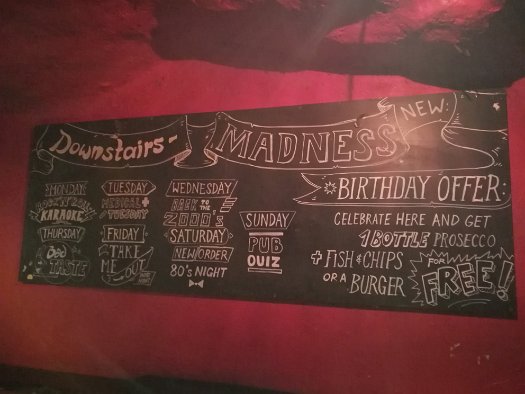 Downstairs-
MADNESS
NEW:
MONDAY
ROCK'N'ROLL
KARAOKE
TUESDAY
MEDICAL +
TUESDAY
WEDNESDAY
BACK TO THE
2000's
THURSDAY
Bad
TASTE
FRIDAY
TAKE
ME OUT
SATURDAY
NEW ORDER
80's NIGHT
SUNDAY
PUB
QUIZ
BIRTHDAY OFFER:
CELEBRATE HERE AND GET
1 BOTTLE PROSECCO
+ FISH & CHIPS
OR A BURGER
FOR
FREE!